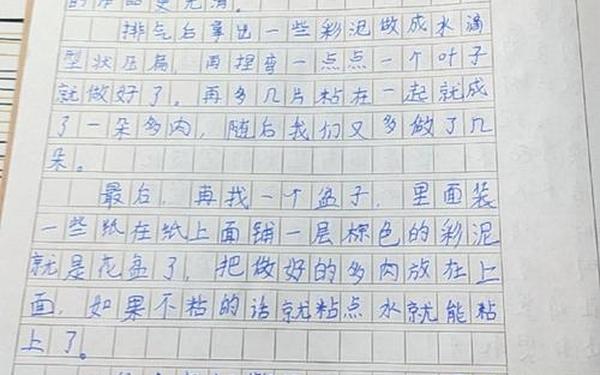 排气后拿出一些彩泥做成水滴
型状压扁，再捏弯一点点一个叶子
就做好了。再多几片粘在一起就成
了一朵多肉，随后我们又多做了几
朵。
最后，再找一个盆子，里面装
一些纸在纸上面铺一层棕色的彩泥
就是花盆了，把做好的多肉放在上
面，如果不粘的话就粘点水就能粘
上了。